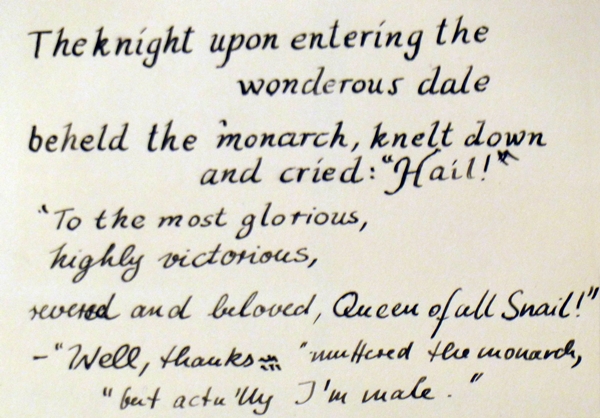 The knight upon entering the
wonderous dale
beheld the monarch, knelt down
and cried: "Hail!"
"To the most glorious,
highly victorious,
revered and beloved, Queen of all Snail!"
– "Well, thanks... "muttered the monarch,
"but actu'lly I'm male."